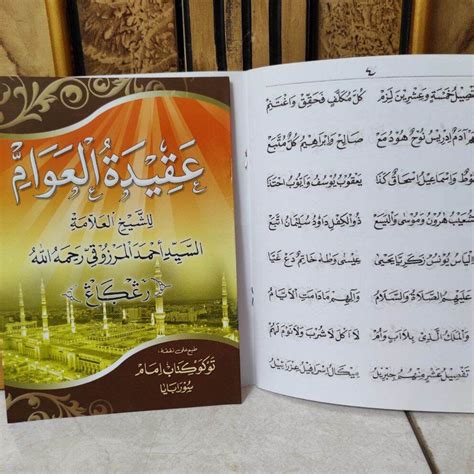 عَقِيدَةُ الْعَوَامِّ
لِلشَّيْخِ الْعَلَّامَةِ
السَّيِّدِ أَحْمَدَ الْمَرْزُوقِي رَحِمَهُ اللهُ
طبع على نفقة:
توكو كتاب إمام
سورابايا
٤
تفصيل خَمْسَةٍ وَعِشْرِينَ لَزِمْ كُلَّ مُكَلَّفٍ فَحَقِّقْ وَاغْتَنِمْ
هم آدَمُ إِدْرِيسُ نُوحٌ هُودُ مَعْ صَالِحْ وَإِبْرَاهِيمُ كُلٌّ مُتَّبَعْ
لُوطٌ وَإِسْمَاعِيلُ إِسْحَاقُ كَذَا يَعْقُوبُ يُوسُفُ وَأَيُّوبُ احْتَذَى
شُعَيْبُ هَارُونُ وَمُوسَى وَالْيَسَعْ ذُو الْكِفْلِ دَاوُدُ سُلَيْمَانُ اتَّبَعْ
إِلْيَاسُ يُونُسُ زَكَرِيَّا يَحْيَى عِيسَى وَطَهَ خَاتِمٌ دَعْ غَيَّا
عَلَيْهِمُ الصَّلَاةُ وَالسَّلَامُ وَآلِهِمْ مَا دَامَتِ الْأَيَّامُ
وَالْمَلَكُ الَّذِي بِلَا أَبٍ وَأُمْ لَا أَكْلَ لَا شُرْبَ وَلَا نَوْمَ لَهُمْ
تَفْصِيلُ عَشْرٍ مِنْهُمُ جِبْرِيلُ مِيكَالُ إِسْرَافِيلُ عِزْرَائِيلُ